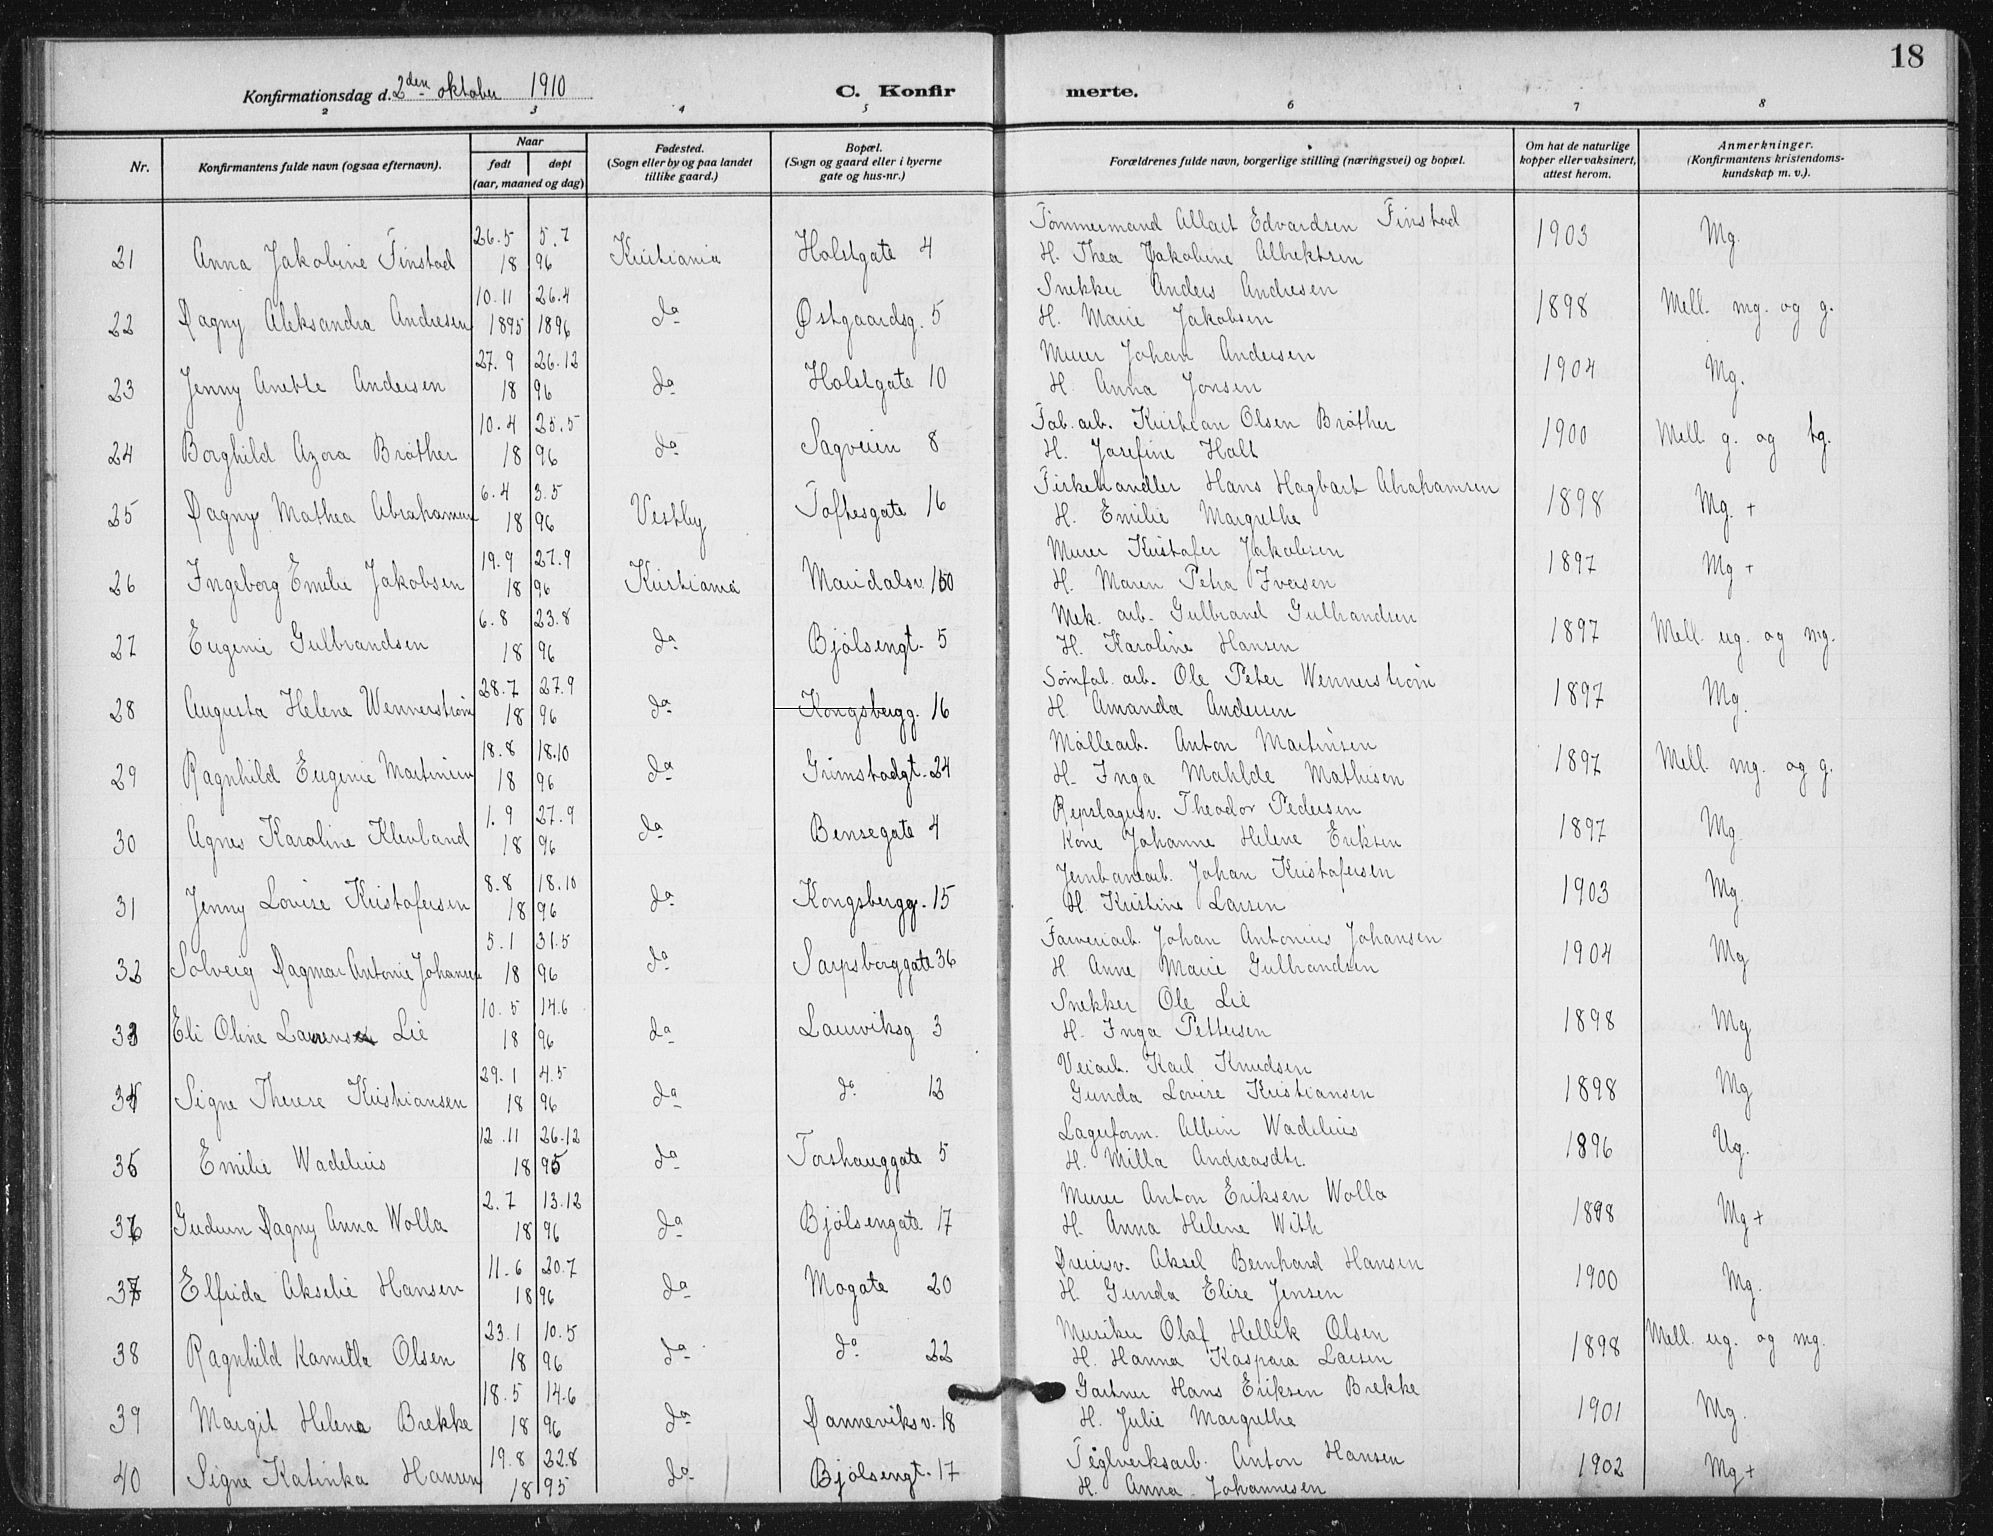 18
Konfirmationsdag d. 2den oktober 1910 C. Konfir merte.
2 3 4 5 6 7 8
Nr. Konfirmantens fulde navn (ogsaa efternavn). Naar født døpt (aar, maaned og dag) Fødested. (Sogn eller by og paa landet tillike gaard.) Bopæl. (Sogn og gaard eller i byerne gate og hus-nr.) Forældrenes fulde navn, borgerlige stilling (næringsvei) og bopæl. Om hat de naturlige kopper eller vaksinert, attest herom. Anmerkninger. (Konfirmantens kristendoms-kundskap m. v.).
26.5 5.7 Tømmermand Albert Edvardsen Finstad
21 Anna Jakobine Finstad 18 96 Kristiania Holstgate 4 H. Thea Jakobine Albrektsen 1903 Mg.
10.11 26.4 Snekker Anders Andresen
22 Dagny Aleksandra Andresen 1895 1896 do Østgaardsg. 5 H. Marie Jakobsen 1898 Mell. mg. og g.
27.9 26.12 Murer Johan Andersen
23 Jenny Anette Andersen 18 96 do Holstgate 10 H. Anna Jonsen 1904 Mg.
10.4 25.5 Fab. arb. Kristian Olsen Bråther
24 Borghild Azora Bråther 18 96 do Sagveien 8 H. Josefine Holt 1900 Mell. g. og tg.
6.4 3.5 Fiskehandler Hans Hagbart Abrahamsen
25 Dagny Mathea Abrahamsen 18 96 Vestby Toftesgate 16 H. Emilie Margrethe 1898 Mg. +
19.9 27.9 Murer Kristofer Jakobsen
26 Ingeborg Emilie Jakobsen 18 96 Kristiania Maridalsv. 150 H. Maren Petra Iversen 1897 Mg +
6.8 23.8 Mek. arb. Gulbrand Gulbrandsen
27 Eugenie Gulbrandsen 18 96 do Bjølsengt. 5 H. Karoline Hansen 1897 Mell. ug. og mg.
28.7 27.9 Sømfab. arb. Ole Peter Wennerstrøm
28 Augusta Helene Wennerstrøm 18 96 do Kongsbergg. 16 H. Amanda Andersen 1897 Mg.
18.8 18.10 Møllearb. Anton Martinsen
29 Ragnhild Eugenie Martinsen 18 96 do Grimstadgt. 24 H. Inga Mahlde Mathisen 1897 Mell. mg. og g.
1.9 27.9 Repslagersv. Theodor Pedersen
30 Agnes Karoline Klevband 18 96 do Bensegate 4 Kone Johanne Helene Eriksen 1897 Mg.
8.8 18.10 Jernbanearb. Johan Kristofersen
31 Jenny Lovise Kristofersen 18 96 do Kongsbergg. 15 H. Kristine Larsen 1903 Mg.
5.1 31.5 Farveriarb. Johan Antonius Johansen
32 Solveig Dagmar Antonie Johansen 18 96 do Sarpsborggate 36 H. Anne Marie Gulbrandsen 1904 Mg
10.5 14.6 Snekker Ole Lie
33 Eli Oline Laurense Lie 18 96 do Laurviksg 3 H. Inga Pettersen 1898 Mg
29.1 4.5 Veiarb. Karl Knudsen
34 Signe Therese Kristiansen 18 96 do do 12 Gunda Lovise Kristiansen 1898 Mg
12.11 26.12 Lagerform. Albin Wadelius
35 Emilie Wadelius 18 95 do Torshauggate 5 H. Milla Andreasdtr. 1896 Ug.
2.7 13.12 Murer Anton Eriksen Wolla
36 Gudrun Dagny Anna Wolla 18 96 do Bjølsengate 17 H. Anna Helene With 1898 Mg +
11.6 20.7 Dreiersv. Aksel Bernhard Hansen
37 Elfrida Akselie Hansen 18 96 do Mogate 20 H. Gunda Elise Jensen 1900 Mg.
23.1 10.5 Musiker Olaf Hellek Olsen
38 Ragnhild Kamilla Olsen 18 96 do do 22 H. Hanna Kaspara Larsen 1898 Mell. ug. og mg.
18.5 14.6 Gartner Hans Eriksen Brekke
39 Margit Helene Brekke 18 96 do Danneviksv. 18 H. Julie Margrethe 1901 Mg.
19.8 22.8 Teglverksarb. Anton Hansen
40 Signe Katinka Hansen 18 95 do Bjølsengt. 17 H. Anna Johannesen 1902 Mg +